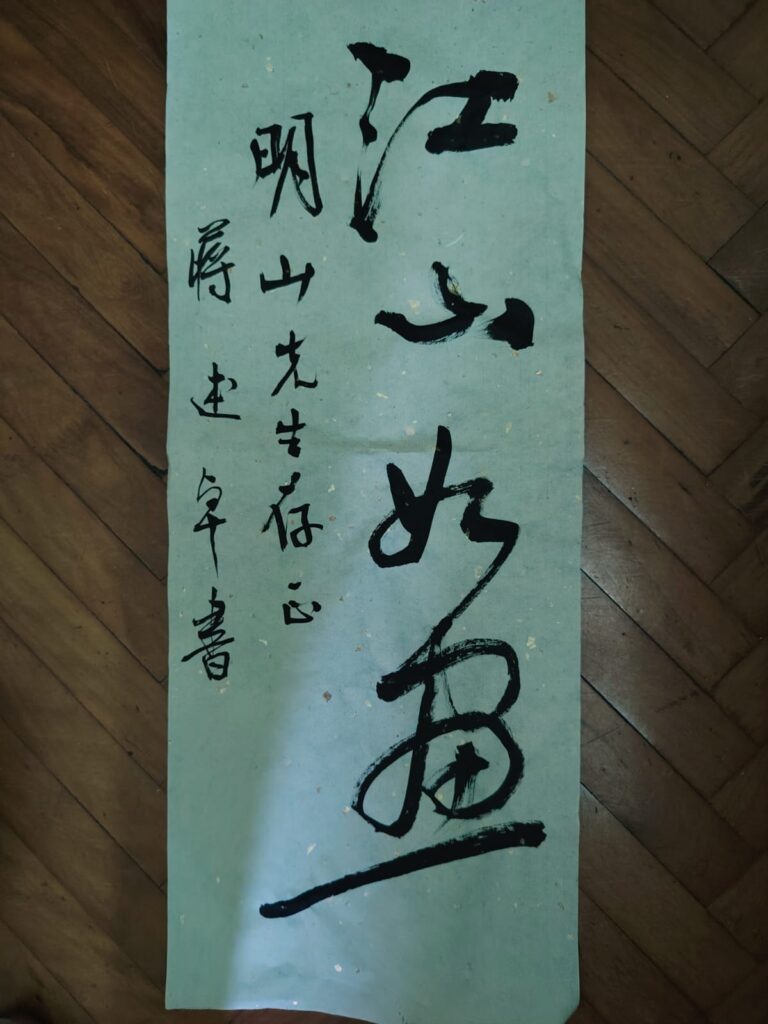 江山如画
明山先生存正
蒋述卓书